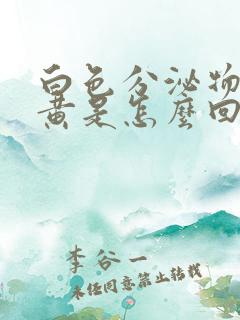 白色分泌物
黄是怎么回
李谷一
未经同意禁止转载